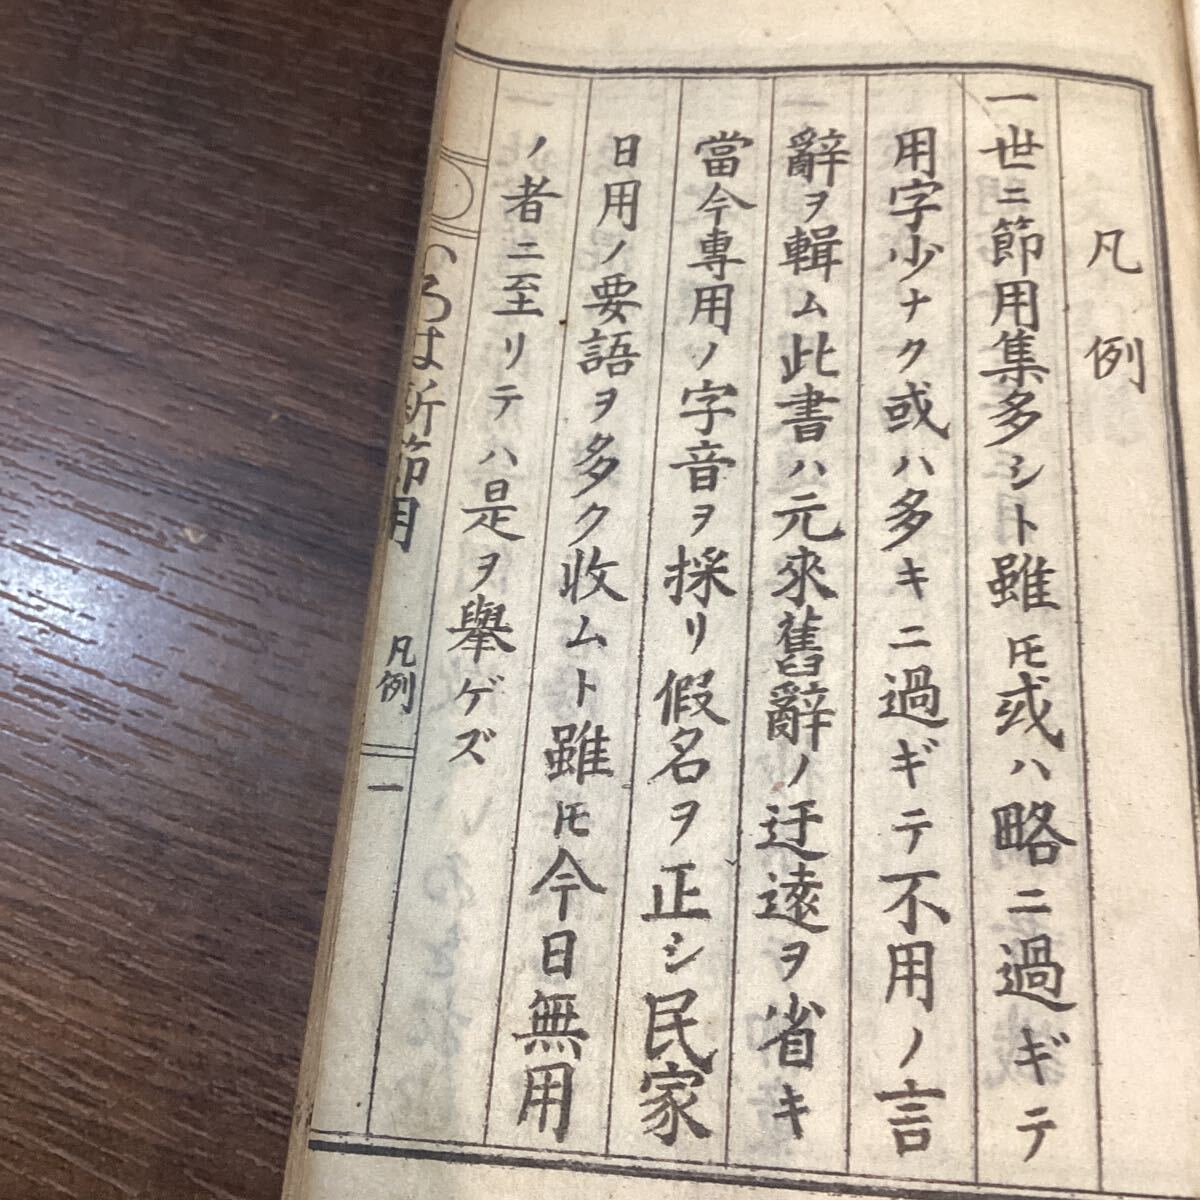 凡例
一世ニ節用集多シト雖𪜈或ハ略ニ過ギテ
用字少ナク或ハ多キニ過ギテ不用ノ言
辭ヲ輯ム此書ハ元來舊辭ノ迂遠ヲ省キ
當今専用ノ字音ヲ採リ假名ヲ正シ民家
日用ノ要語ヲ多ク收ムト雖𪜈今日無用
ノ者ニ至リテハ是ヲ擧ゲズ
いろは新節用 凡例 一